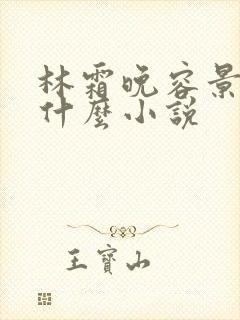 林霜晚容景
什麼小說
王寶山